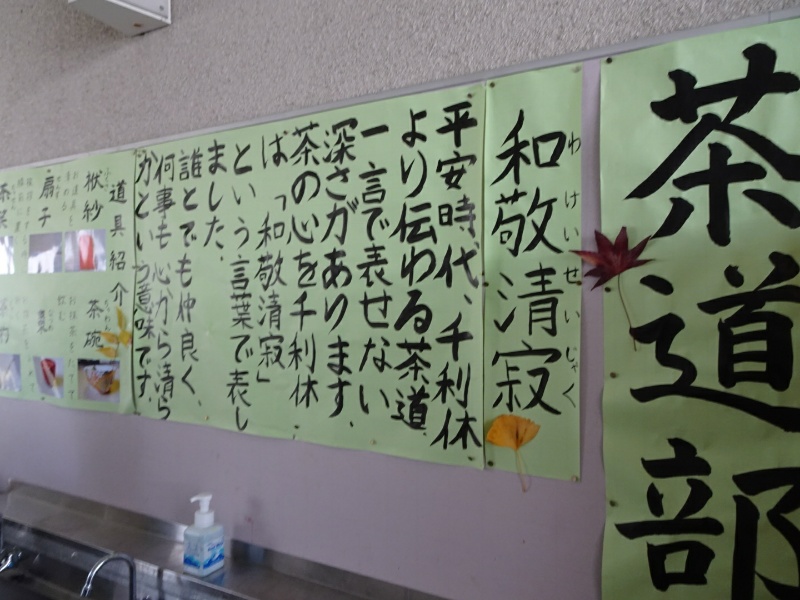 茶道部
和敬清寂
わけいせいじゃく
平安時代、千利休
より伝わる茶道
一言で表せない
深さがあります。
茶の心を千利休
は「和敬清寂」
という言葉で表し
ました。
誰とでも仲良く、
何事も心から清ら
かという意味です。
道具紹介
袱紗
扇子
茶碗